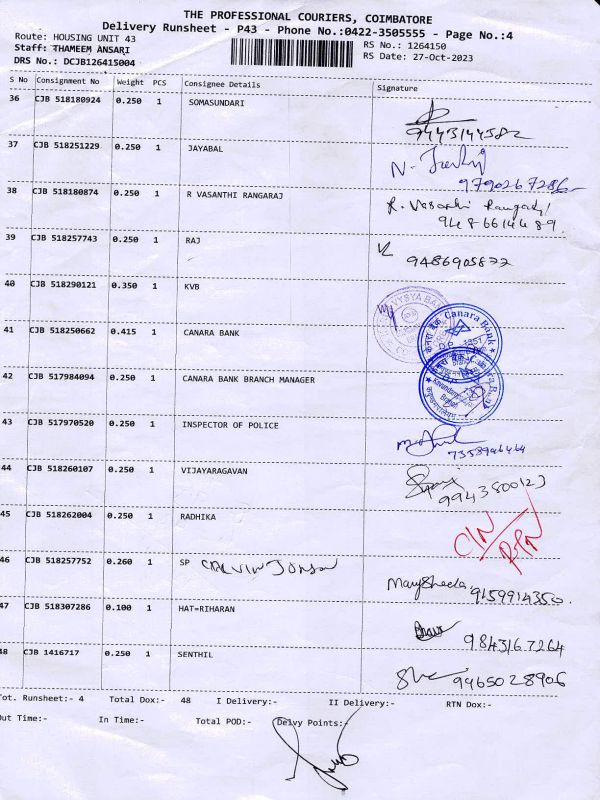 THE PROFESSIONAL COURIERS, COIMBATORE
Delivery Runsheet - P43 - Phone No.:0422-3505555 - Page No.:4
Route: HOUSING UNIT 43
RS No.: 1264150
Staff: THAMEEM ANSARI
RS Date: 27-Oct-2023
DRS No.: DCJB126415004
S No Consignment No Weight PCS Consignee Details Signature
36 CJB 518180924 0.250 1 SOMASUNDARI
9443144582
37 CJB 518251229 0.250 1 JAYABAL
9790267286
38 CJB 518180874 0.250 1 R VASANTHI RANGARAJ R. Vasanthi Rangaraj
9486614489
39 CJB 518257743 0.250 1 RAJ
9486905877
40 CJB 518290121 0.350 1 KVB
VYSYA BA
41 CJB 518250662 0.415 1 CANARA BANK
Canara Bank
42 CJB 517984094 0.250 1 CANARA BANK BRANCH MANAGER
43 CJB 517970520 0.250 1 INSPECTOR OF POLICE
7358946464
44 CJB 518260107 0.250 1 VIJAYARAGAVAN
9943500123
45 CJB 518262004 0.250 1 RADHIKA
C/N
RTN
46 CJB 518257752 0.260 1 SP CALVIN JONSON
Mary Sheela 9159914350
47 CJB 518307286 0.100 1 HAT=RIHARAN
9843167264
48 CJB 1416717 0.250 1 SENTHIL
9965028906
Tot. Runsheet:- 4 Total Dox:- 48 I Delivery:- II Delivery:- RTN Dox:-
Out Time:- In Time:- Total POD:- Delvy Points:-